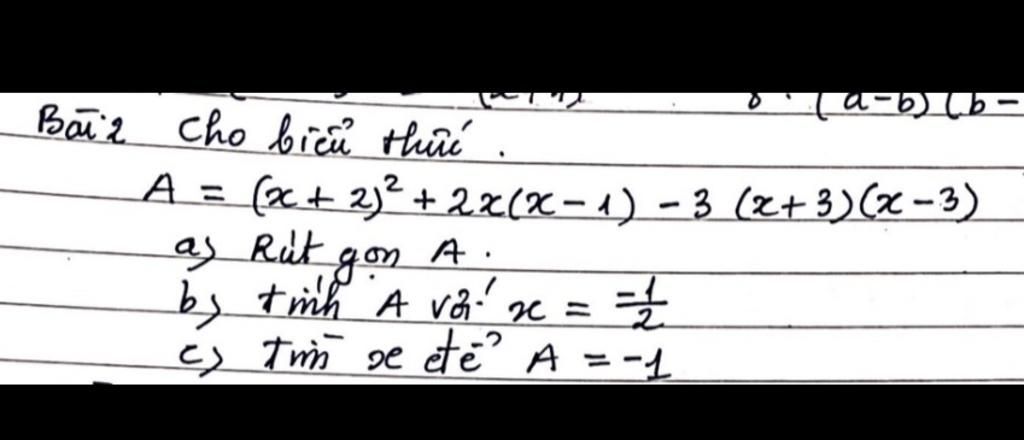 (a-b)(b-
Bài 2 Cho biểu thức.
A = (x+2)² + 2x(x-1) - 3 (x+3)(x-3)
a) Rút gọn A.
b) tính A với x = -1/2
c) Tìm x để A = -1